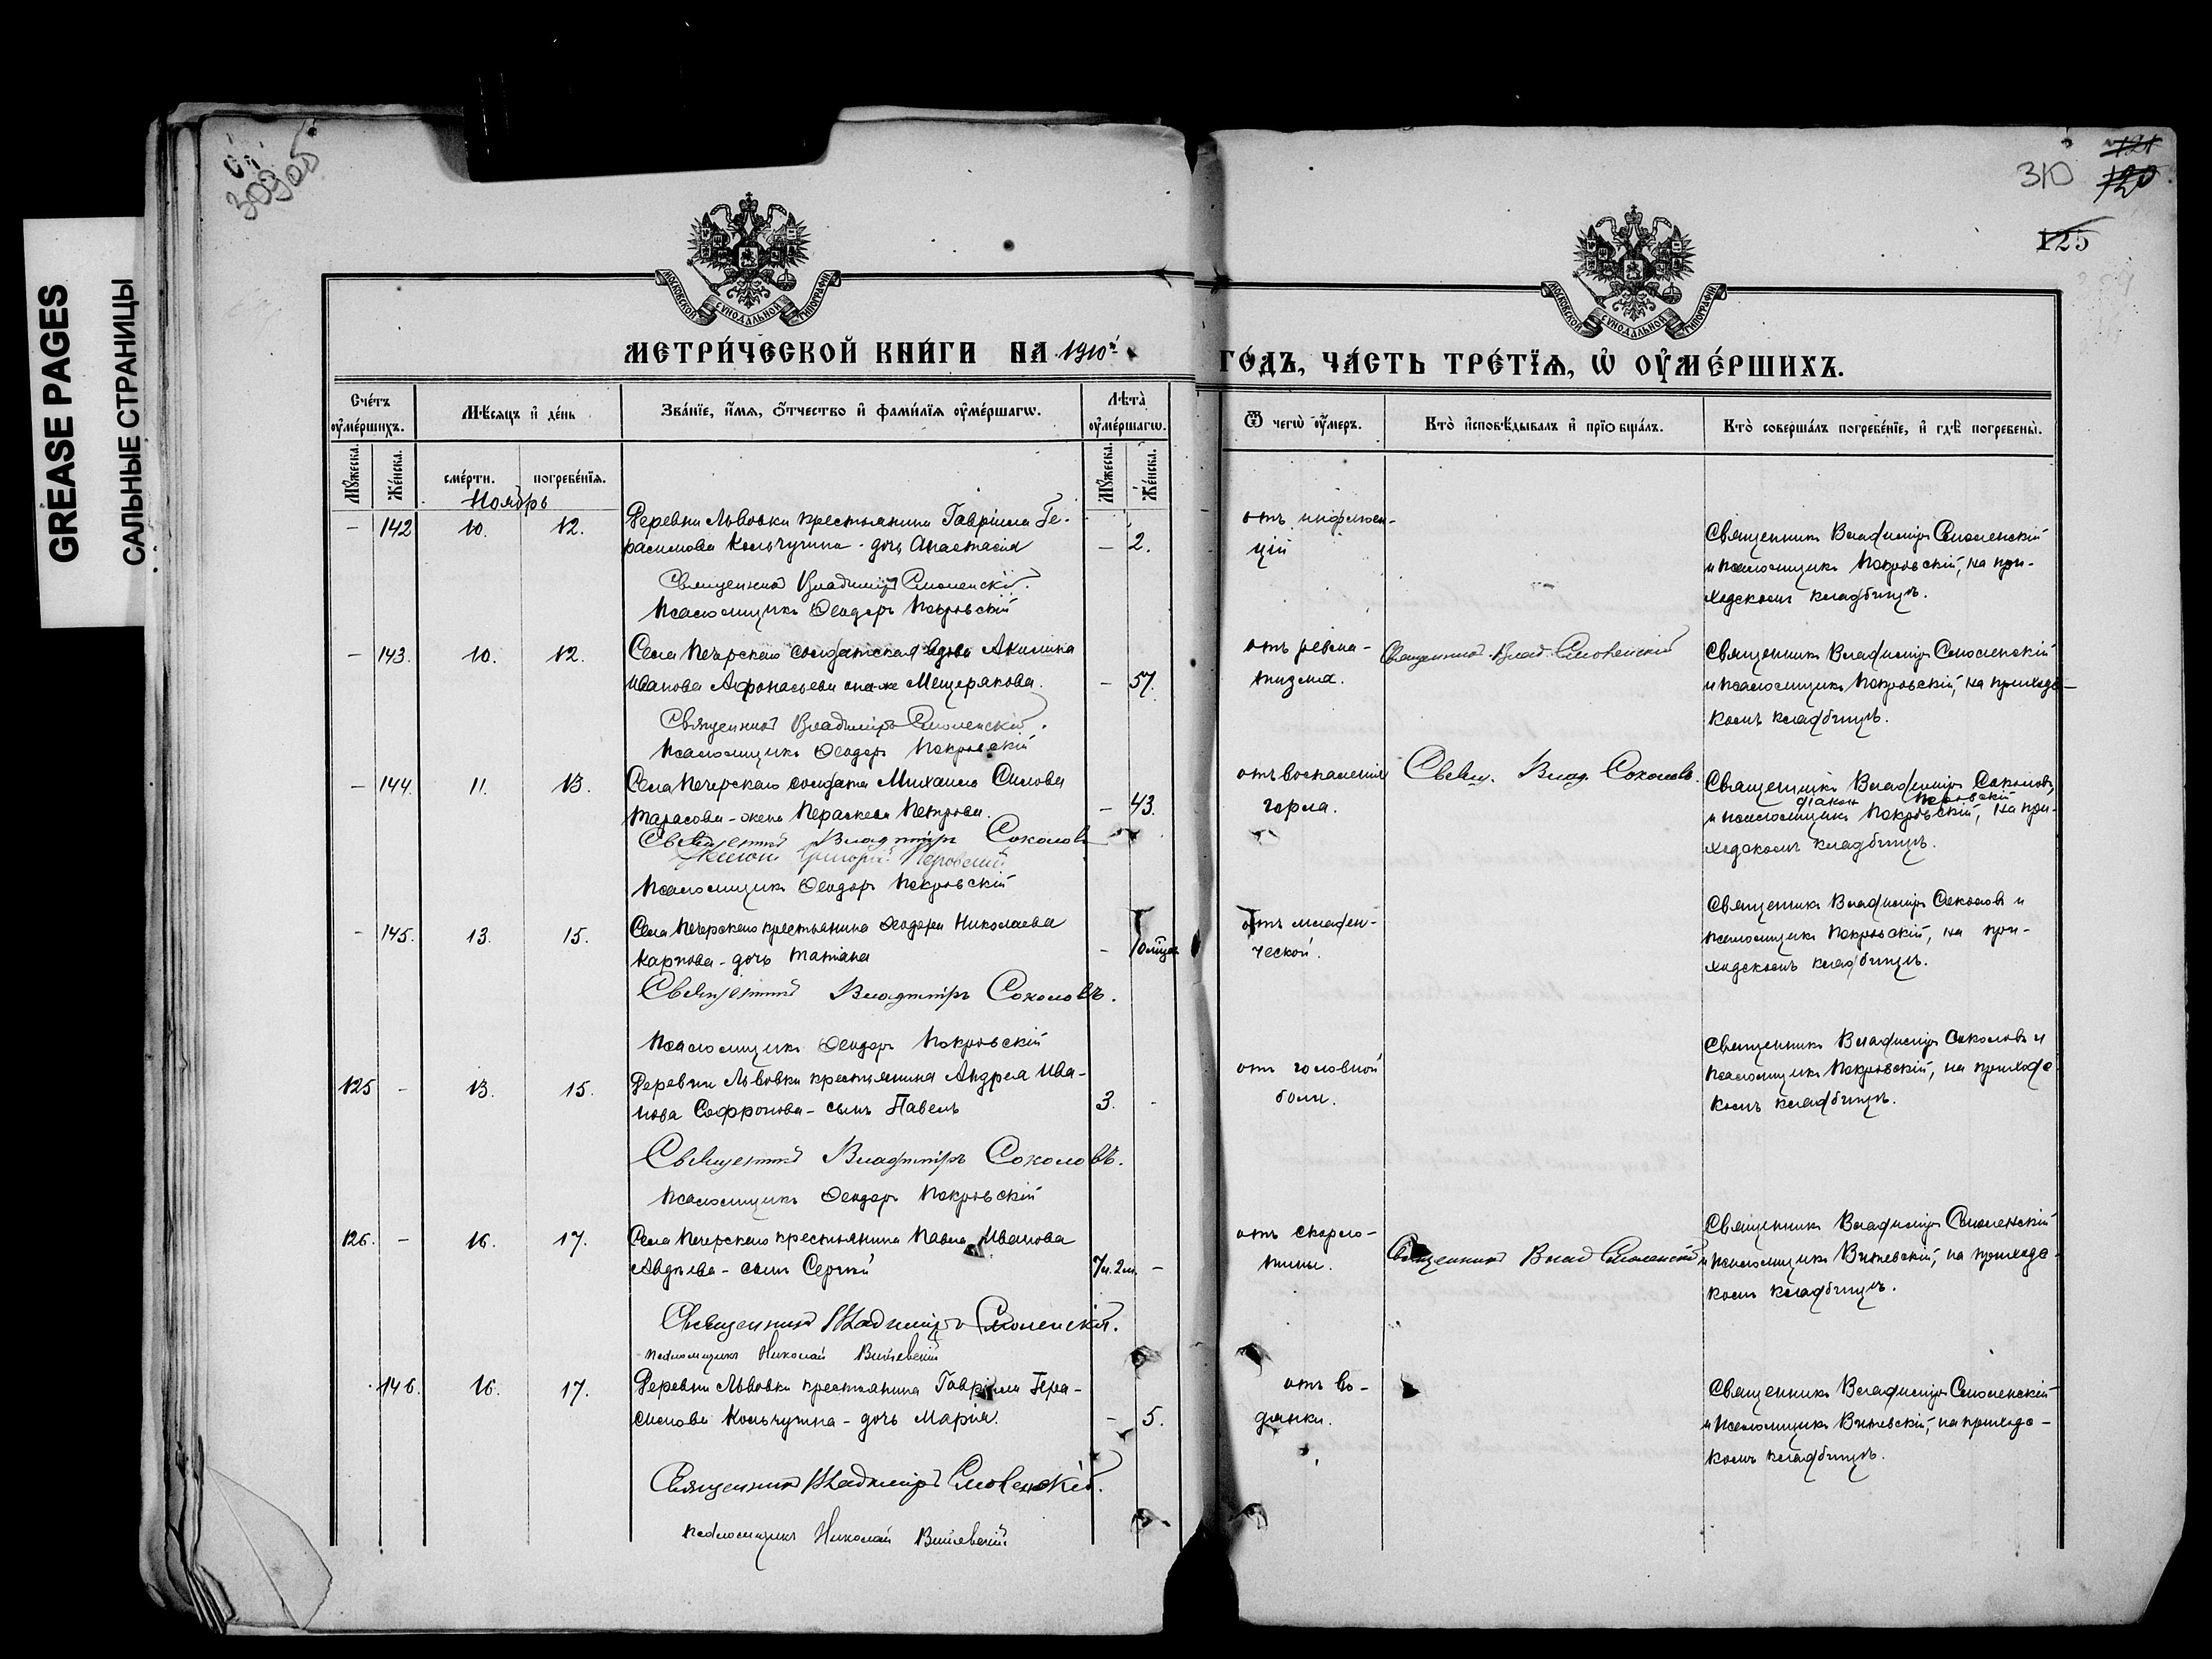 GREASE PAGES
САЛЬНЫЕ СТРАНИЦЫ
309 об
310
121
120
125
МОСКОВСКОЙ СѴНОДАЛЬНОЙ ТИПОГРАФІИ
МОСКОВСКОЙ СѴНОДАЛЬНОЙ ТИПОГРАФІИ
МЕТРИ́ЧЕСКОЙ КНИ́ГИ НА 1910й
ГО́ДЪ, ЧА́СТЬ ТРЕ́ТЇѦ, Ѡ҆ ОУ҆МЕ́РШИХЪ.
Сче́тъ оу҆ме́ршихъ.
Мѣ́сѧцъ и҆ де́нь
Зва́нїе, и҆́мѧ, ѻ҆́тчество и҆ фами́лїѧ оу҆ме́ршагѡ.
Лѣ́та оу҆ме́ршагѡ.
Ѿ чегѡ̀ оу҆́меръ.
Кто̀ и҆сповѣ́дывалъ и҆ прїѡбща́лъ.
Кто̀ соверша́лъ погребе́нїе, и҆ гдѣ̀ погребены̀.
Мꙋ́жеска.
Же́нска.
сме́рти.
погребе́нїѧ.
Мꙋ́жеска.
Же́нска.
Ноябрь
– 142 10. 12. Деревни Львовки крестьянина Гавріила Ге-
расимова Кольчугина - дочь Анастасія – 2.
Священникъ Владиміръ Смоленскій.
Псаломщикъ Ѳеодоръ Покровскій
отъ инфлюен-
ціи
Священникъ Владиміръ Смоленскій
и псаломщикъ Покровскій, на при-
ходскомъ кладбищѣ.
– 143. 10. 12. Села Печерскаго солдатская вдова Акилина
Иванова Афонасьева она-же Мещерякова. – 57.
Священникъ Владиміръ Смоленскій.
Псаломщикъ Ѳеодоръ Покровскій
отъ ревма-
тизма.
Священникъ Влад. Смоленскій
Священникъ Владиміръ Смоленскій
и псаломщикъ Покровскій, на приходс-
комъ кладбищѣ.
– 144. 11. 13. Села Печерскаго солдата Михаила Силова
Тарасова - жена Параскева Петрова. – 43.
Священникъ Владиміръ Соколовъ
Діаконъ Григорій Перовскій
Псаломщикъ Ѳеодоръ Покровскій
отъ воспаленія
горла.
Свящ. Влад. Соколовъ.
Священникъ Владиміръ Соколовъ,
діаконъ Перовскій
и псаломщикъ Покровскій, на при-
ходскомъ кладбищѣ.
– 145. 13. 15. Села Печерскаго крестьянина Ѳеодора Николаева
Карпова - дочь Татіана –
Священникъ Владиміръ Соколовъ.
Псаломщикъ Ѳеодоръ Покровскій
отъ младен-
ческой.
Священникъ Владиміръ Соколовъ и
псаломщикъ Покровскій, на при-
ходскомъ кладбищѣ.
125 – 13. 15. Деревни Львовки крестьянина Андрея Ива-
нова Софронова - сынъ Павелъ 3. -
Священникъ Владиміръ Соколовъ.
Псаломщикъ Ѳеодоръ Покровскій
отъ головной
боли.
Священникъ Владиміръ Соколовъ и
псаломщикъ Покровскій, на приходс-
комъ кладбищѣ.
126. – 16. 17. Села Печерскаго крестьянина Павла Иванова
Авдѣева - сынъ Сергій –
Священникъ Владиміръ Смоленскій.
псаломщикъ Николай
отъ скарла-
тины.
Священникъ Влад Смоленскій
Священникъ Владиміръ Смоленскій
и псаломщикъ на приходс-
комъ кладбищѣ.
146. 16. 17. Деревни Львовки крестьянина Гавріила Гера-
симова Кольчугина - дочь Марія. – 5.
Священникъ Владиміръ Смоленскій.
псаломщикъ Николай
отъ во-
дянки.
Священникъ Владиміръ Смоленскій
и псаломщикъ на приходс-
комъ кладбищѣ.